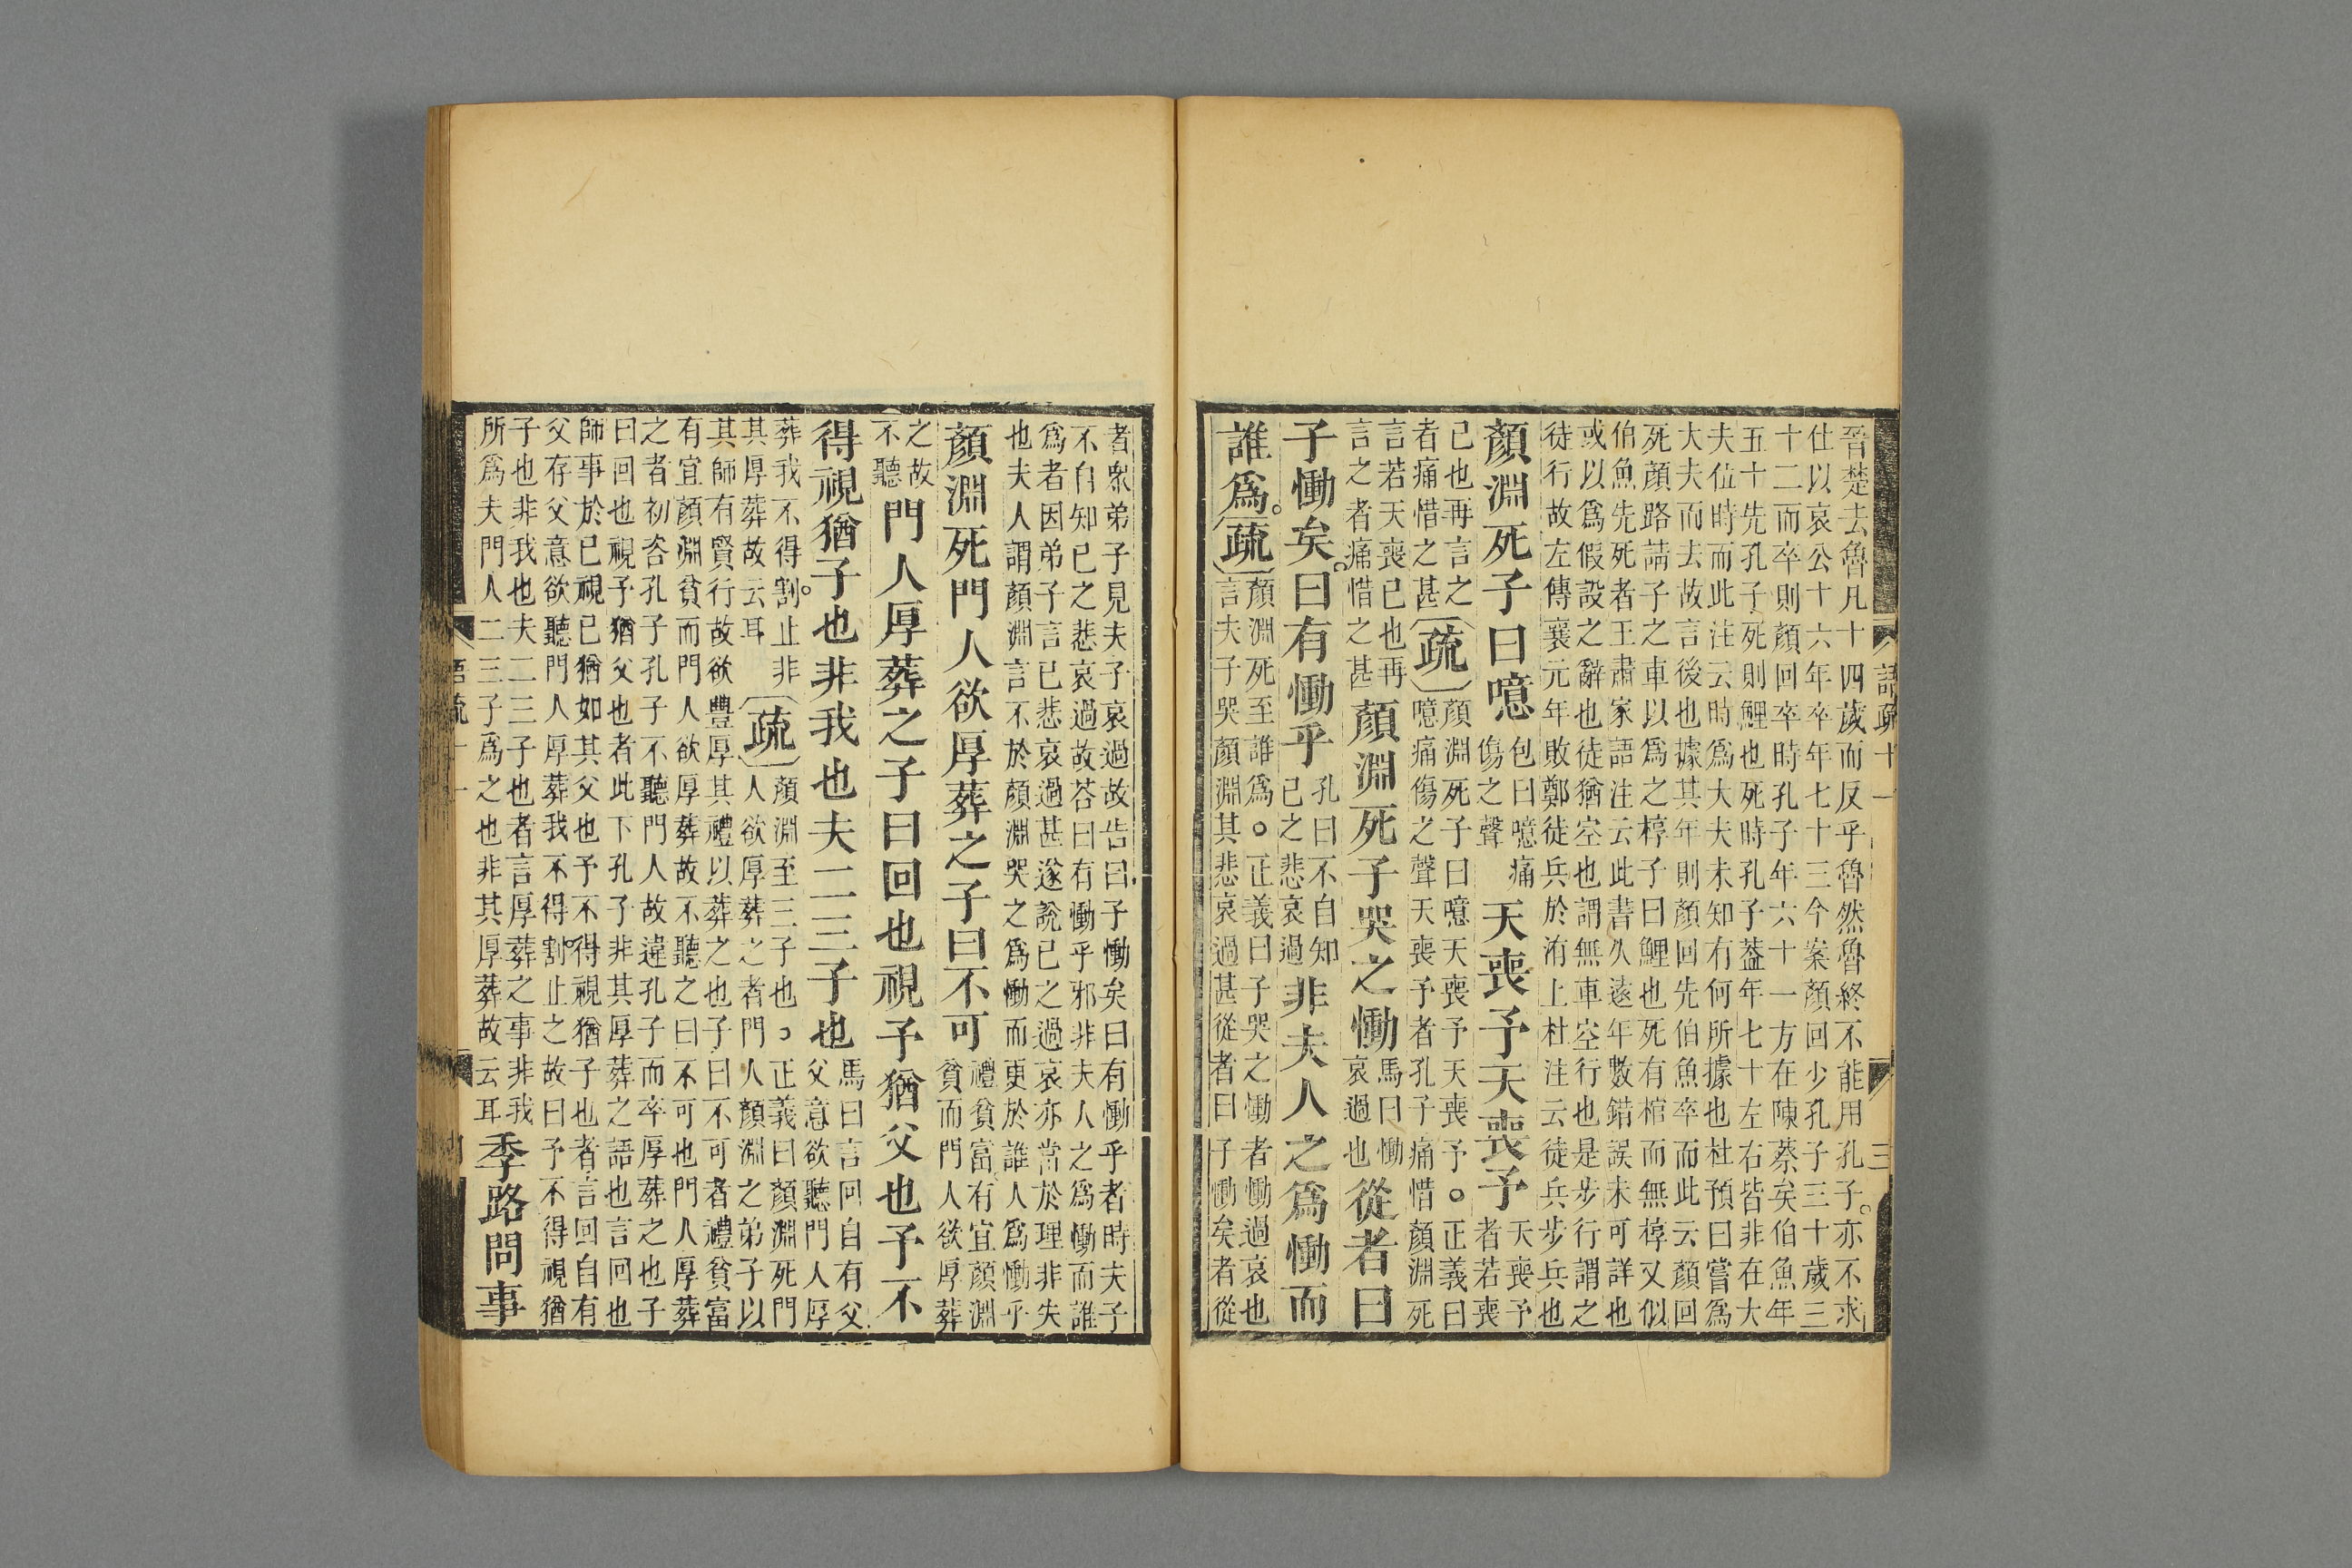 晉楚去魯凡十四歲而反乎魯然魯終不能用孔子亦不求
仕以哀公十六年卒年七十三今案顏回少孔子三十歲三
十二而卒則顏回卒時孔子年六十一方在陳蔡矣伯魚年
五十先孔子死則鯉也死時孔子蓋年七十左右皆非在大
夫位時而此注云時爲大夫未知有何所據也杜預曰嘗爲
大夫而去故言後也據其年則顏回先伯魚卒而此云顏回
死顏路請子之車以爲之椁子曰鯉也死有棺而無椁又似
伯魚先死者王肅家語注云此書久遠年數錯誤未可詳也
或以爲假設之辭也徒猶空也謂無車空行也是步行謂之
徒行故左傳襄元年敗鄭徒兵於洧上杜注云徒兵步兵也
顏淵死子曰噫包曰噫痛傷之聲天喪予天喪予天喪予者若喪
己也再言之者痛惜之甚疏顏淵死子曰噫天喪予天喪予。正義曰噫痛傷之聲天喪予者孔子痛惜顏淵死
言若天喪已也再言之者痛惜之甚顏淵死子哭之慟馬曰慟哀過也從者曰
子慟矣。曰有慟乎孔曰不自知己之悲哀過非夫人之爲慟而
誰爲。疏顏淵死至誰爲。正義曰子哭之慟者慟過哀也言夫子哭顏淵其悲哀過甚從者曰子慟矣者從
者衆弟子見夫子哀過故告曰子慟矣曰有慟乎者時夫子
不自知已之悲哀過故荅曰有慟乎邪非夫人之爲慟而誰
爲者因弟子言已悲哀過甚遂說已之過哀亦當於理非失
也夫人謂顏淵言不於顏淵哭之爲慟而更於誰人爲慟乎
顏淵死門人欲厚葬之子曰不可禮貧富有宜顏淵貧而門人欲厚葬
之故不聽門人厚葬之子曰回也視予猶父也予不
得視猶子也非我也夫二三子也馬曰言回自有父父意欲聽門人厚
葬我不得割。止非其厚葬故云耳疏顏淵至三子也。正義曰顏淵死門人欲厚葬之者門人顏淵之弟子以
其師有賢行故欲豐厚其禮以葬之也子曰不可者禮貧富
有宜顏淵貧而門人欲厚葬故不聽之曰不可也門人厚葬
之者初咨孔子孔子不聽門人故違孔子而卒厚葬之也子
曰回也視予猶父也者此下孔子非其厚葬之語也言回也
師事於已視已猶如其父也予不得視猶子也者言回自有
父存父意欲聽門人厚葬我不得割止之故曰予不得視猶
子也非我也夫二三子也者言厚葬之事非我
所爲夫門人二三子爲之也非其厚葬故云耳季路問事
語疏十一
三